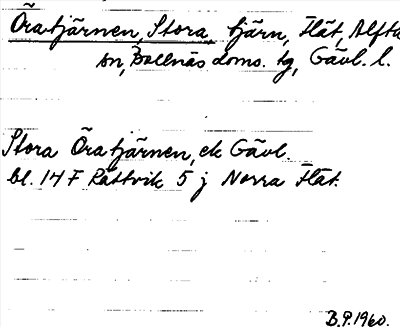 Öratjärnen, Stora, tjärn, Flät, Alfta
sn, Bollnäs doms. tg, Gävl. l.
Stora Öratjärnen, ek Gävl.
bl. 14 F Rättvik 5 j Norra Flät.
B.P. 1960.